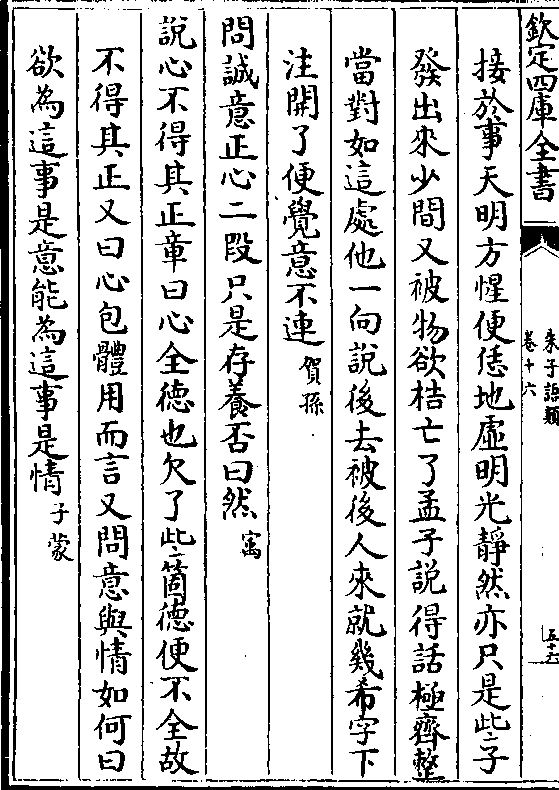 欽定四庫全書
朱子語類
卷十六
五十六
接於事天明方惺便恁地虛明光靜然亦只是些子
發出來少間又被物欲梏亡了孟子說得話極齊整
當對如這處他一向說後去被後人來就幾希字下
注開了便覺意不連賀孫
問誠意正心二段只是存養否曰然㝢
說心不得其正章曰心全德也欠了些箇德便不全故
不得其正又曰心包體用而言又問意與情如何曰
欲為這事是意能為這事是情子蒙